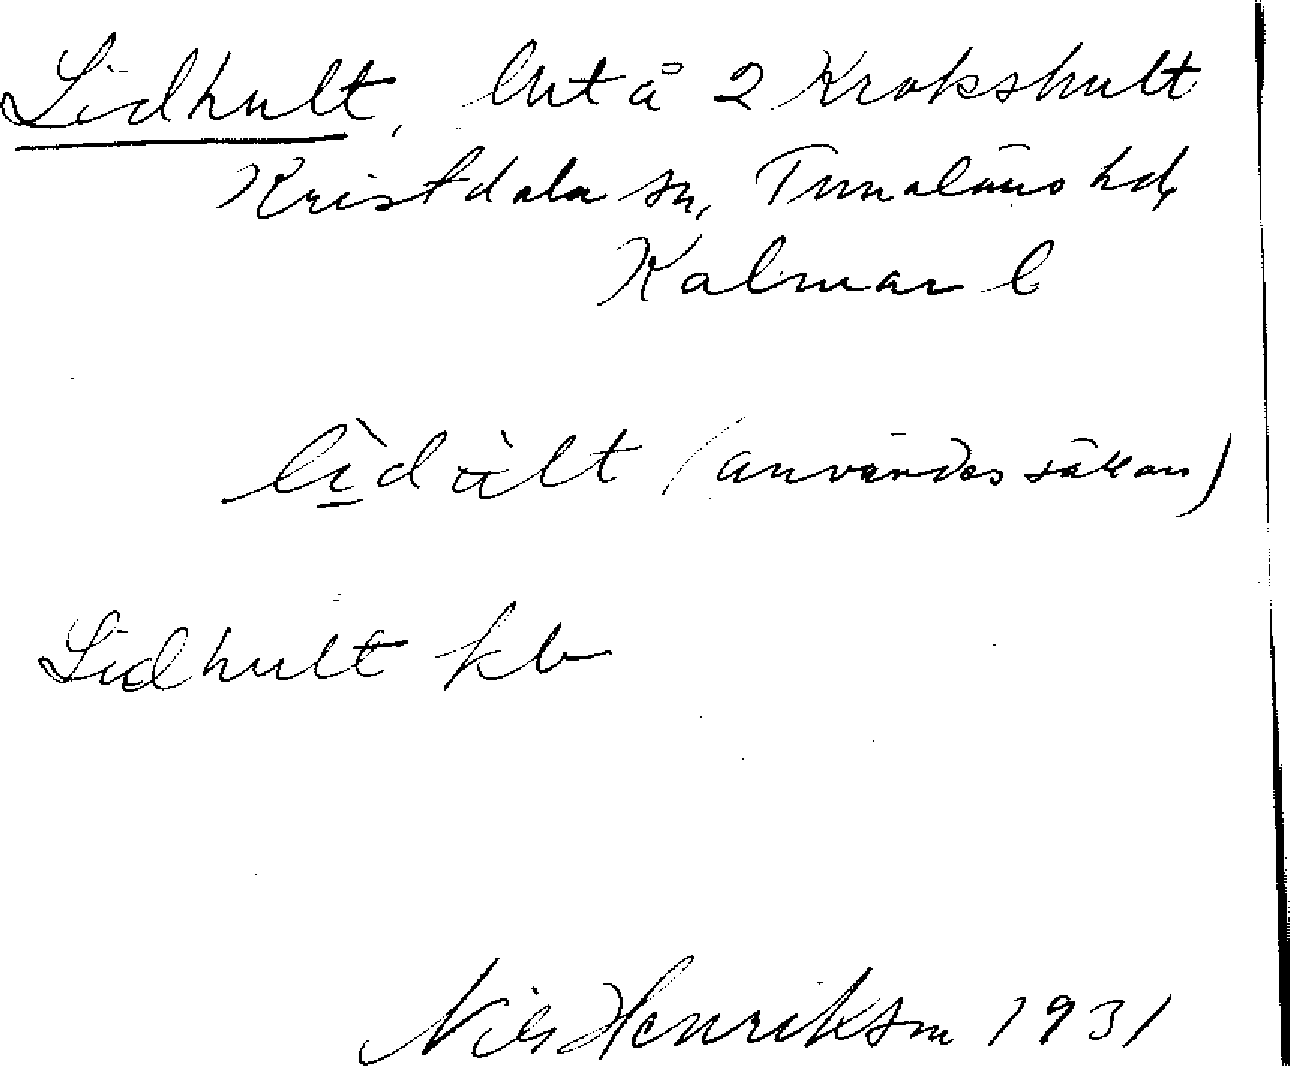 Lidhult, lht å 2 Krokshult
Kristdala sn, Tunaläns hd,
Kalmar l
lìdùlt (användes sällan)
Lidhult kb
Nils Henrikson 1931